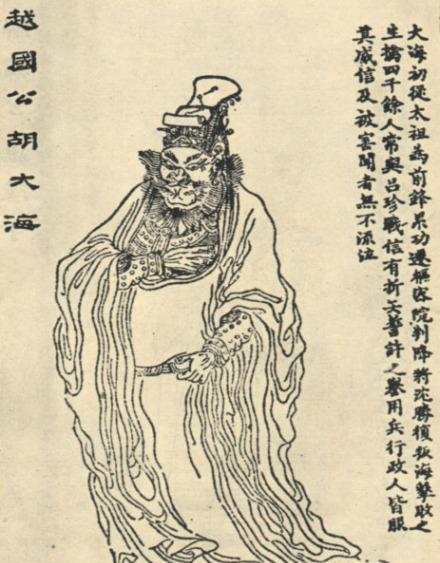 大海初從太祖為前鋒累功遷樞密院判降將沈勝復叛海擊敗之
生擒四千餘人常與呂珍戰信有折矢誓許之譽用兵行政人皆服
其威信及被害聞者無不流泣
越國公胡大海